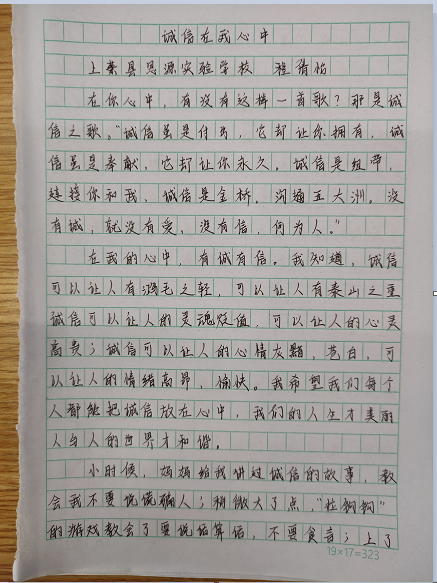 诚信在我心中
上蔡县思源实验学校 程倩怡
在你心中，有没有这样一首歌？那是诚
信之歌。“诚信虽是付出，它却让你拥有，诚
信虽是奉献，它却让你永久。诚信是纽带，
连接你和我，诚信是金桥，沟通五大洲。没
有诚，就没有爱，没有信，何为人。”
在我的心中，有诚有信。我知道，诚信
可以让人有鸿毛之轻，可以让人有泰山之重
诚信可以让人的灵魂贬值，可以让人的心灵
高贵；诚信可以让人的心情灰黯，苍白，可
以让人的情绪高昂，愉快。我希望我们每个
人都能把诚信放在心中，我们的人生才美丽
人与人的世界才和谐。
小时候，妈妈给我讲过诚信的故事，教
会我不要说谎骗人；稍微大了点，“拉钩钩”
的游戏教会了要说话算话，不要食言；上了
19×17=323